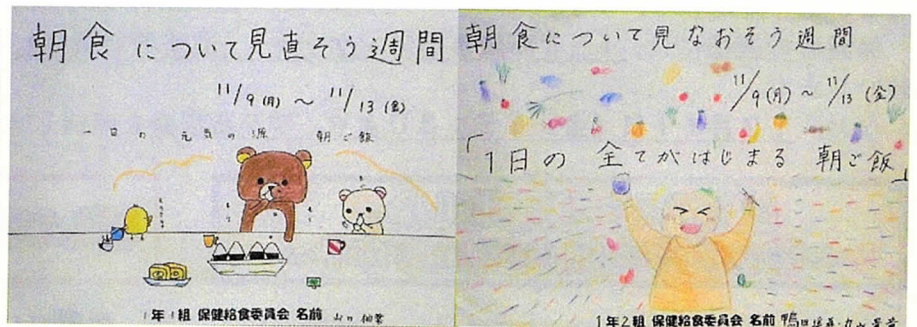 朝食について見直そう週間
11/9(月)～11/13(金)
一日の 元気の源 朝ご飯
1年1組 保健給食委員会 名前 山口
朝食について見なおそう週間
11/9(月)～11/13(金)
「1日の 全てがはじまる 朝ご飯」
1年2組 保健給食委員会 名前